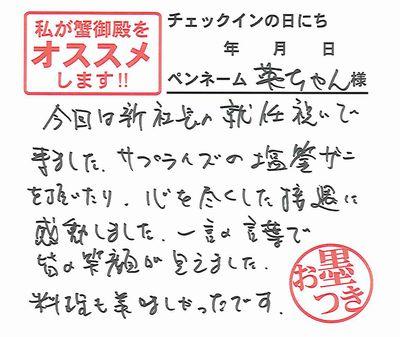 私が蟹御殿を
オススメ
します!!
チェックインの日にち
年 月 日
ペンネーム 葵ちゃん 様
今回は新社長の就任祝いで
来ました。サプライズの塩釜ガニ
を頂いたり、心を尽くした接遇に
感動しました。一言の言葉で
皆の笑顔が見えました。
料理も美味しかったです。
お墨つき